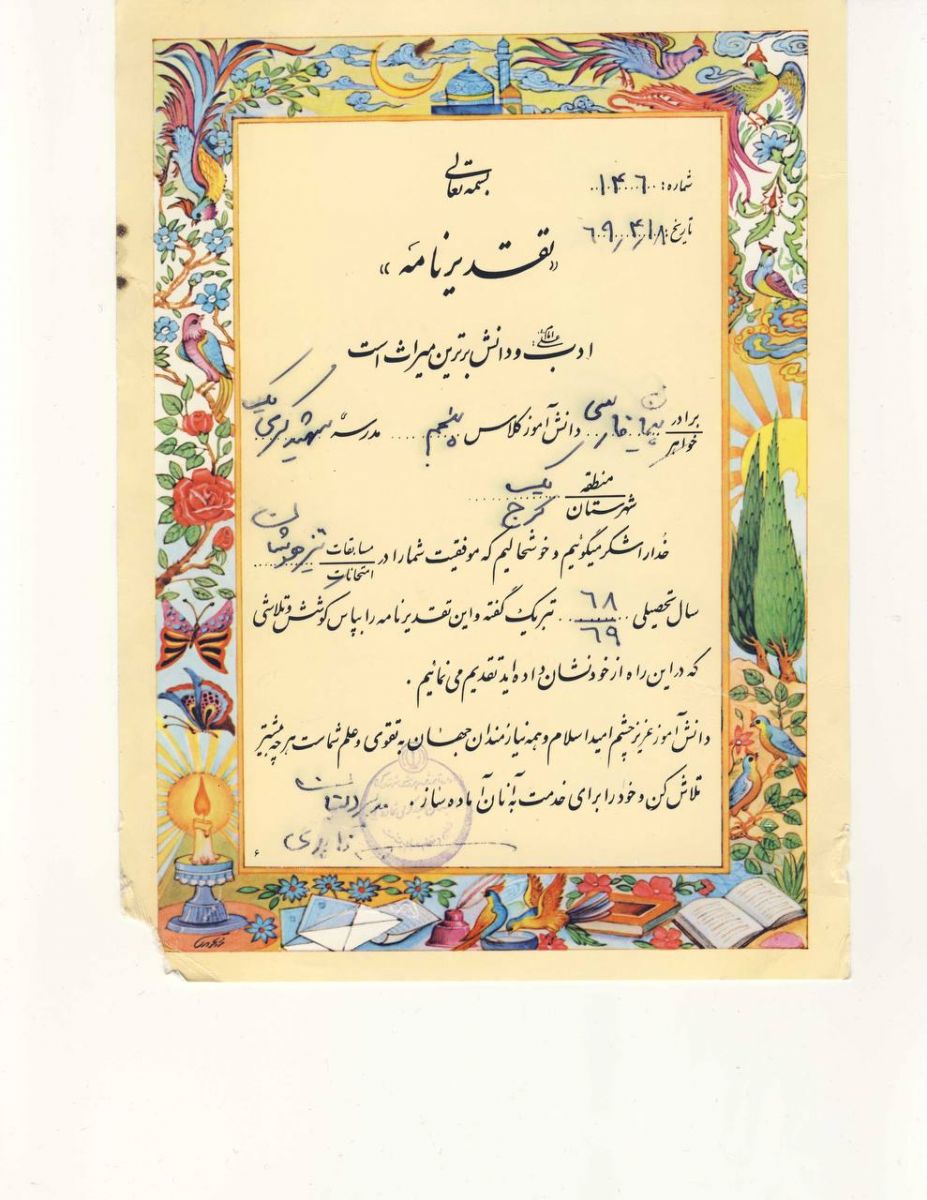 بسمه تعالی
شماره: ۱۴۶۰
تاریخ: ۶۹/۴/۱۸
«تقدیرنامه»
ادب و دانش برترین میراث است
امام علی
برادر
خواهر
پیمان فارسی دانش آموز کلاس پنجم مدرسهٔ شهید کری یک
منطقه یک
شهرستان کرج
خدا را شکر میگوئیم و خوشحالیم که موفقیت شما را در مسابقات
امتحانات
تیزهوشان
سال تحصیلی ۶۸
۶۹
تبریک گفته و این تقدیرنامه را بپاس کوشش و تلاشی
که در این راه از خود نشان داده اید تقدیم می نمائیم .
دانش آموز عزیز چشم امید اسلام و همه نیازمندان جهان به تقوی و علم شماست هر چه بیشتر
تلاش کن و خود را برای خدمت به آنان آماده ساز .
۶